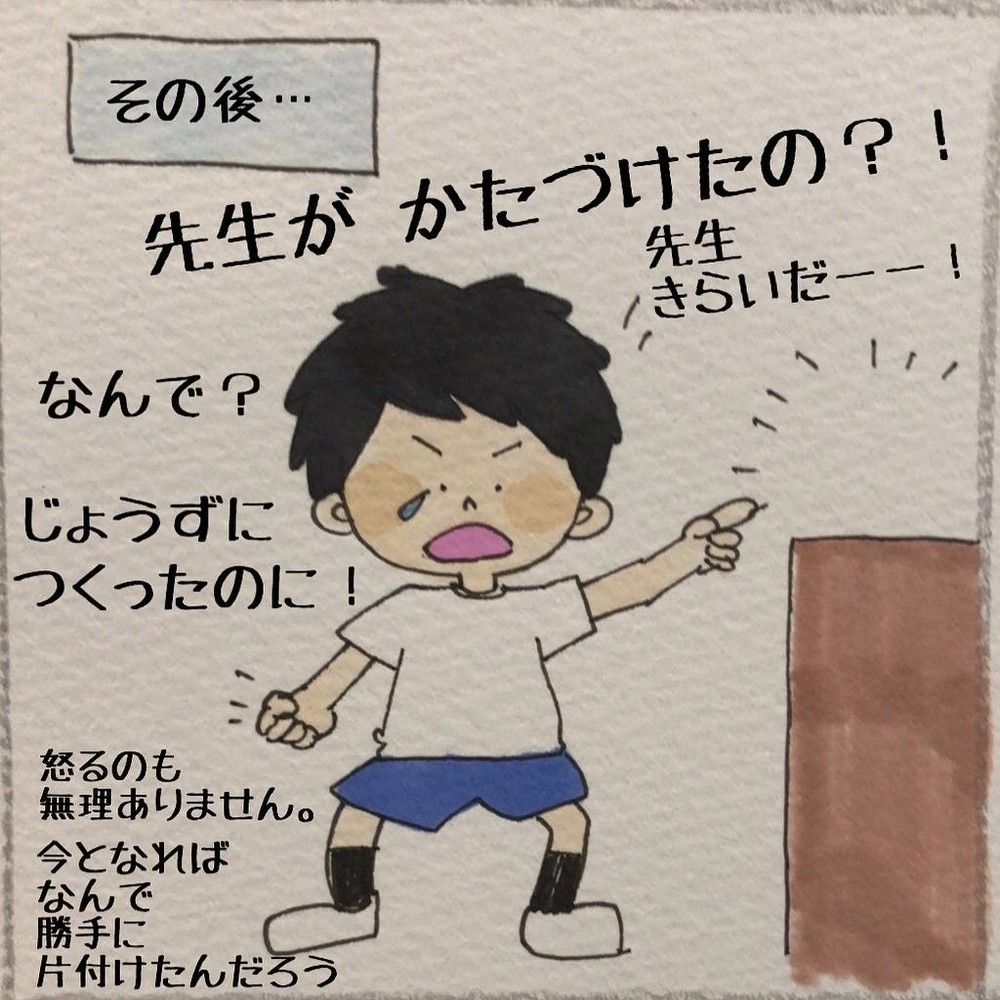 その後…
先生が かたづけたの？！
先生
きらいだーー！
なんで？
じょうずに
つくったのに！
怒るのも
無理ありません。
今となれば
なんで
勝手に
片付けたんだろう